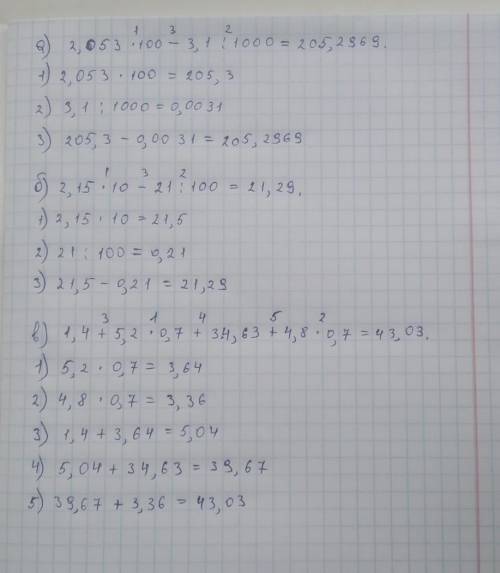 а) 2,053 ·¹ 100 -³ 3,1 :² 1000 = 205,2969.
1) 2,053 · 100 = 205,3
2) 3,1 : 1000 = 0,0031
3) 205,3 - 0,0031 = 205,2969
б) 2,15 ·¹ 10 -³ 21 :² 100 = 21,29.
1) 2,15 · 10 = 21,5
2) 21 : 100 = 0,21
3) 21,5 - 0,21 = 21,29
в) 1,4 +³ 5,2 ·¹ 0,7 +⁴ 34,63 +⁵ 4,8 ·² 0,7 = 43,03.
1) 5,2 · 0,7 = 3,64
2) 4,8 · 0,7 = 3,36
3) 1,4 + 3,64 = 5,04
4) 5,04 + 34,63 = 39,67
5) 39,67 + 3,36 = 43,03